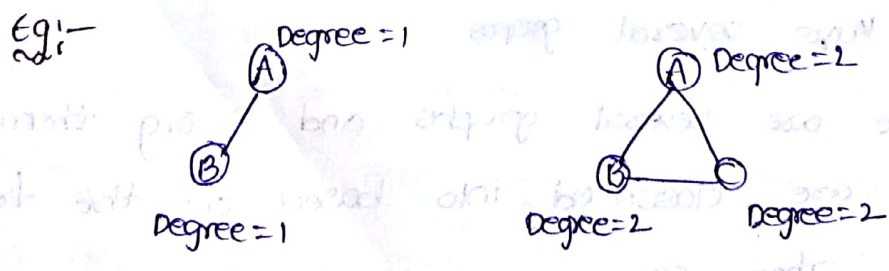 Eg:-
A Degree = 1
B
Degree = 1
A Degree = 2
B C
Degree = 2 Degree = 2